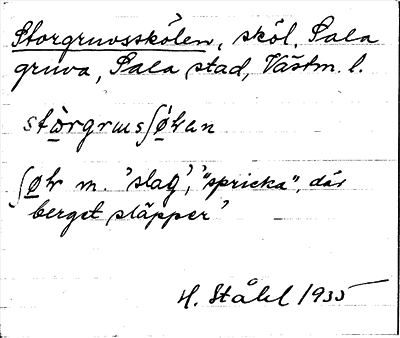 Storgruvsskölen, sköl, Sala
gruva, Sala stad, Västm. l.
m. 'slag', "spricka", där
berget släpper'
H. Ståhl 1935